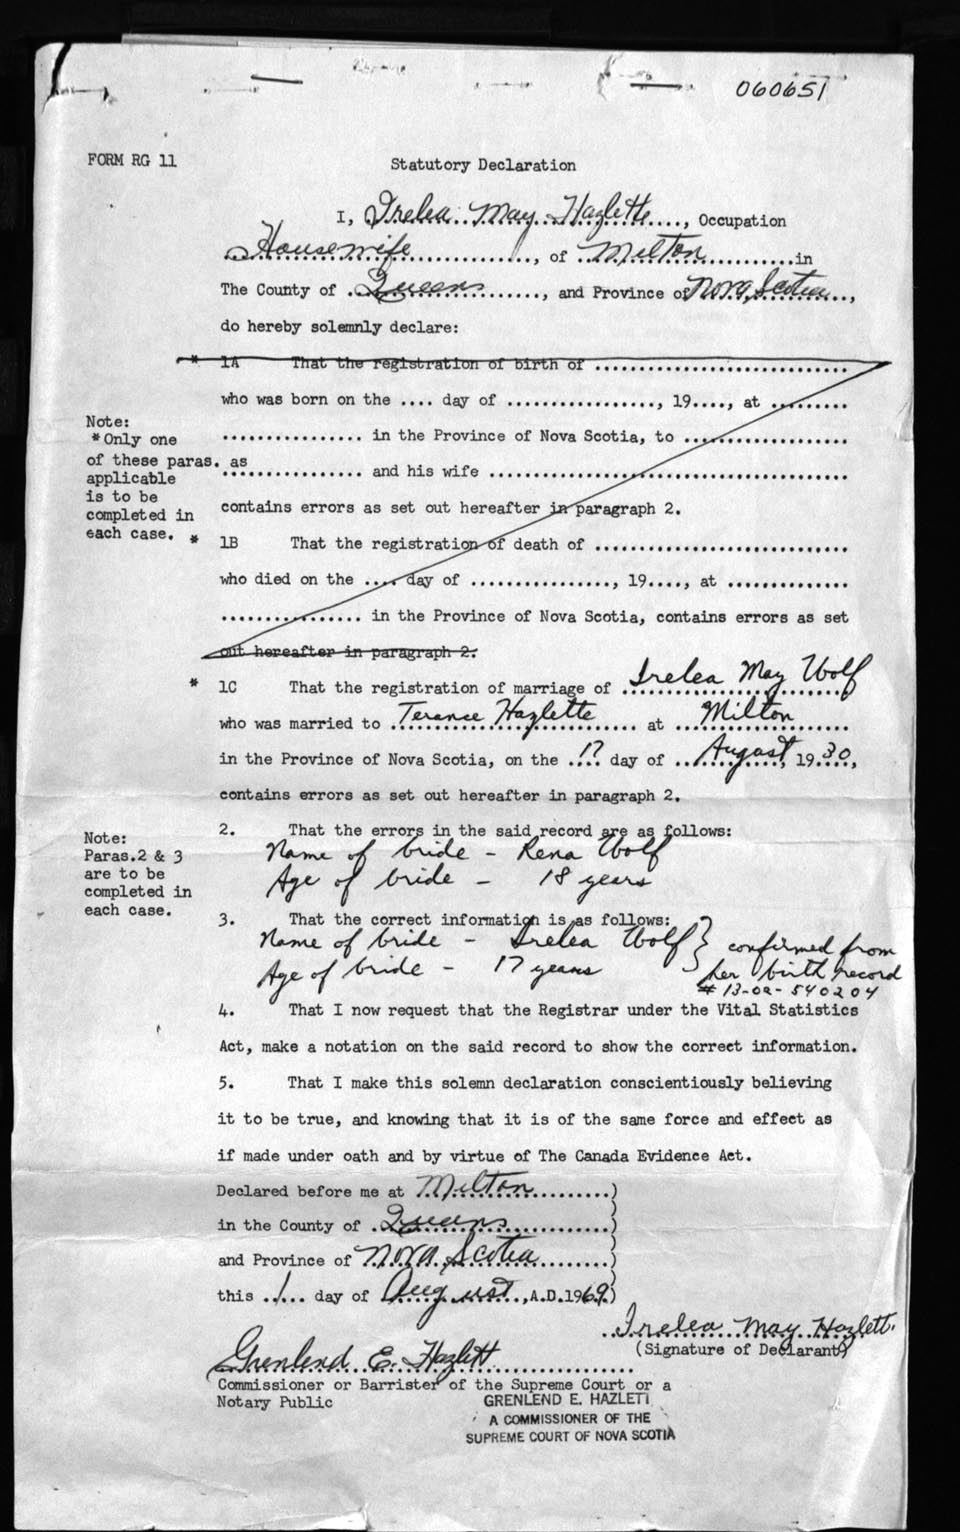 060651
FORM RG 11
Statutory Declaration
I, Irelea May Hazlette, Occupation
Housewife, of Milton in
The County of Queens, and Province of Nova Scotia,
do hereby solemnly declare:
* 1A That the registration of birth of ..............................
who was born on the .... day of ................., 19...., at .........
................ in the Province of Nova Scotia, to ...................
................ and his wife ..........................................
contains errors as set out hereafter in paragraph 2.
Note:
*Only one
of these paras. as
applicable
is to be
completed in
each case.
* 1B That the registration of death of ..............................
who died on the .... day of ................, 19...., at ..............
................. in the Province of Nova Scotia, contains errors as set
out hereafter in paragraph 2.
* 1C That the registration of marriage of Irelea May Wolf
who was married to Terance Hazlette at Milton
in the Province of Nova Scotia, on the 17 day of August, 1930,
contains errors as set out hereafter in paragraph 2.
Note:
Paras.2 & 3
are to be
completed in
each case.
2. That the errors in the said record are as follows:
Name of bride - Rena Wolf
Age of bride - 18 years
3. That the correct information is as follows:
Name of bride - Irelea Wolf } confirmed from
Age of bride - 17 years her birth record
# 13-02-540204
4. That I now request that the Registrar under the Vital Statistics
Act, make a notation on the said record to show the correct information.
5. That I make this solemn declaration conscientiously believing
it to be true, and knowing that it is of the same force and effect as
if made under oath and by virtue of The Canada Evidence Act.
Declared before me at Milton )
in the County of Queens )
and Province of Nova Scotia )
this 1 day of August, A.D.1969)
Irelea May Hazlett.
(Signature of Declarant)
Grenlend E. Hazlett
Commissioner or Barrister of the Supreme Court or a
Notary Public
GRENLEND E. HAZLETT
A COMMISSIONER OF THE
SUPREME COURT OF NOVA SCOTIA